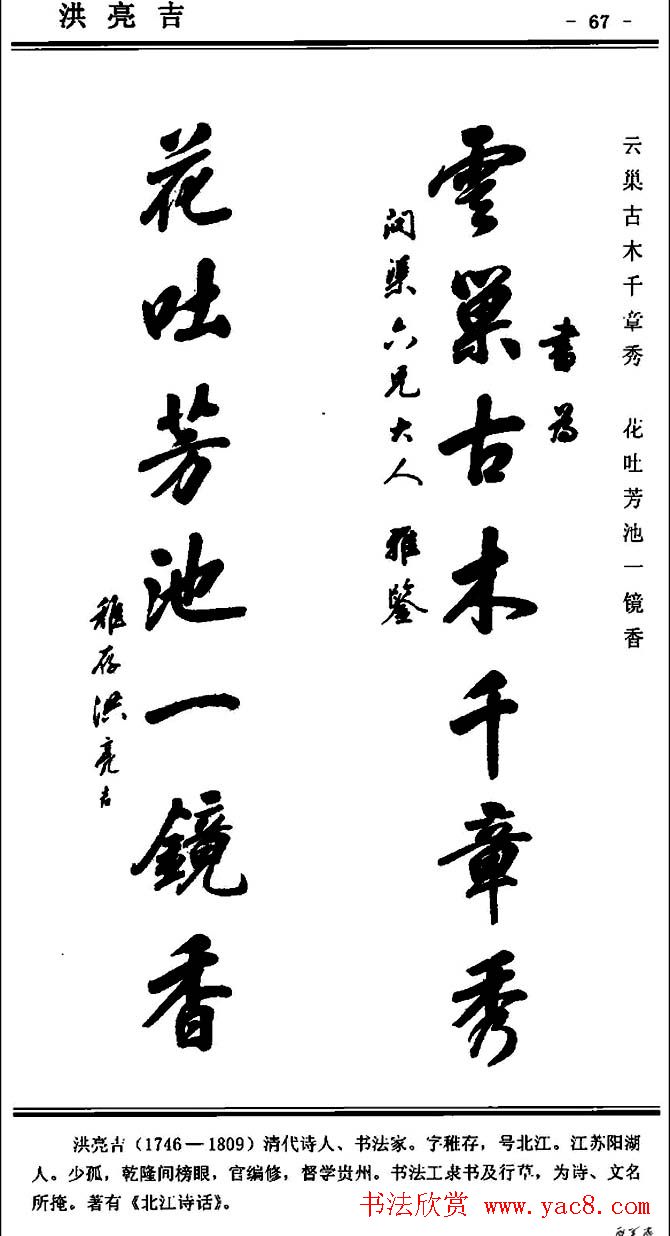 洪亮吉
- 67 -
云巢古木千章秀 花吐芳池一镜香
書為
雲巢古木千章秀
渠六兄大人 雅鑒
花吐芳池一鏡香
稚存洪亮吉
洪亮吉(1746—1809)清代诗人、书法家。字稚存,号北江。江苏阳湖
人。少孤,乾隆间榜眼,官编修,督学贵州。书法工隶书及行草,为诗、文名
所掩。著有《北江诗话》。
书法欣赏 www.yac8.com